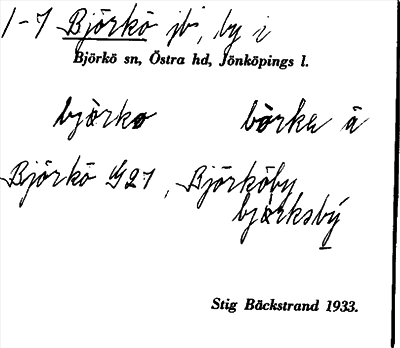 1-7 Björkö jb, by i
Björkö sn, Östra hd, Jönköpings l.
bjòrko bòrka å
Björkö G27, Björköby
bjòrksbý
Stig Bäckstrand 1933.